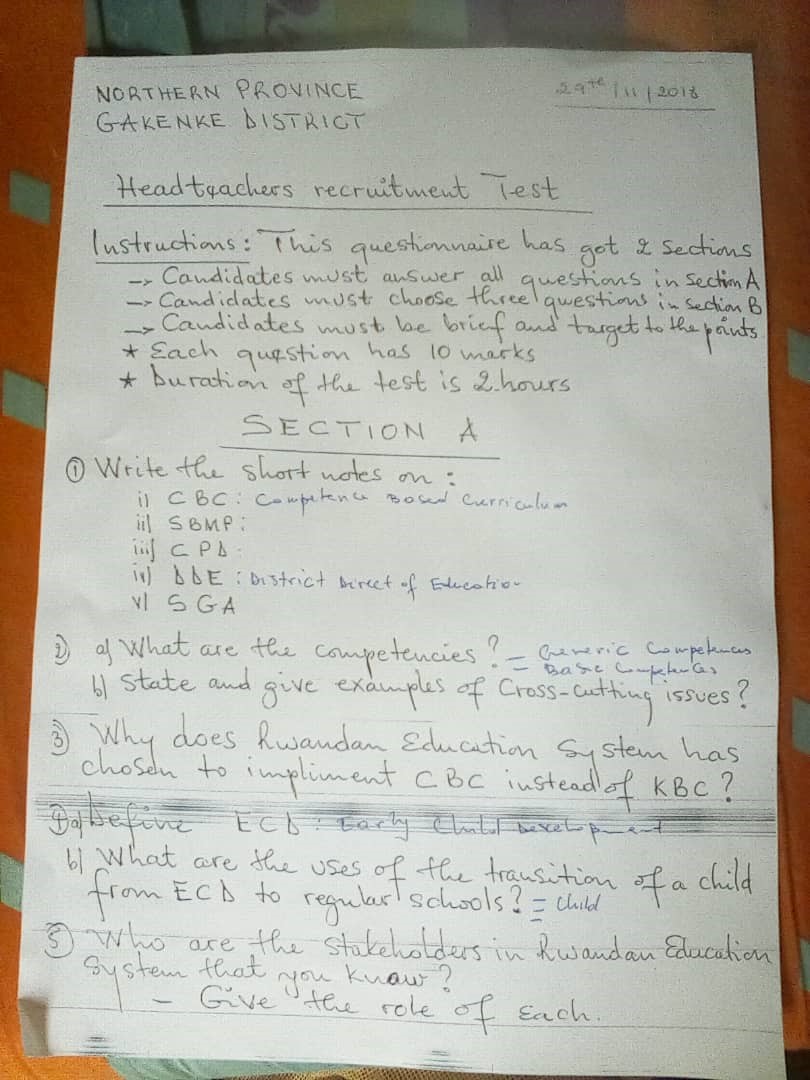 NORTHERN PROVINCE 29th/11/2018
GAKENKE DISTRICT
Headteachers recruitment Test
Instructions: This questionnaire has got 2 sections
-> Candidates must answer all questions in Section A
-> Candidates must choose three questions in Section B
-> Candidates must be brief and target to the points
* Each question has 10 marks
* Duration of the test is 2 hours
SECTION A
① Write the short notes on :
i) CBC: Competence Based Curriculum
ii) SBMP:
iii) CPD:
iv) DDE : District Direct of Education
v) SGA
2) a) What are the competencies? = Generic Competences
= Basic Competences
b) State and give examples of Cross-cutting issues?
3) Why does Rwandan Education System has
chosen to impliment CBC instead of KBC?
4) a) Define ECD: Early Child Development
b) What are the uses of the transition of a child
from ECD to regular schools? = Child
5) Who are the Stakeholders in Rwandan Education
System that you know?
- Give the role of Each.